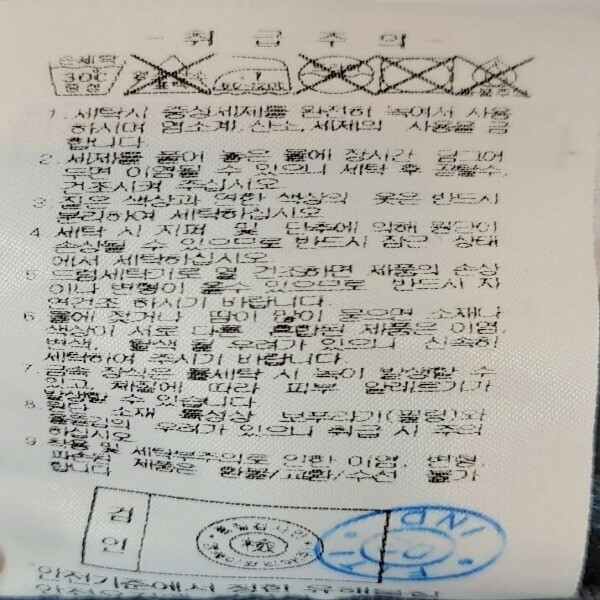 취 급 주 의
손세탁
30℃
중성
1. 세탁시 중성세제를 완전히 녹여서 사용
하시며 염소계, 산소, 세제의 사용을 금
합니다.
2. 세제를 풀어 놓은 물에 장시간 담그어
두면 이염될 수 있으니 세탁 후 탈수,
건조시켜 주십시오.
3. 짙은 색상과 연한 색상의 옷은 반드시
분리하여 세탁하십시오
4. 세탁 시 지퍼 및 단추에 의해 원단이
손상될 수 있으므로 반드시 잠근 상태
에서 세탁하십시오.
5. 드럼세탁기로 열 건조하면 제품의 손상
이나 변형이 올수 있으므로 반드시 자
연건조 하시기 바랍니다.
6. 물에 젖거나 땀이 많이 묻으면 소재나
색상이 서로 다른 혼합된 제품은 이염,
변색, 탈색 될 우려가 있으니 신속히
세탁하여 주시기 바랍니다.
7. 금속 장식은 물세탁 시 녹이 발생할 수
있고, 체질에 따라 피부 알레르기가
발생할 수 있습니다
8. 원단 소재 특성상 보푸라기(필링)와
올뜯김의 우려가 있으니 취급 시 주의
하십시오
9. 착용 및 세탁부주의로 인한 이염, 변형,
파손된 제품은 환불/교환/수선 불가
합니다
검
인
안전기준에서 정한 유해물질